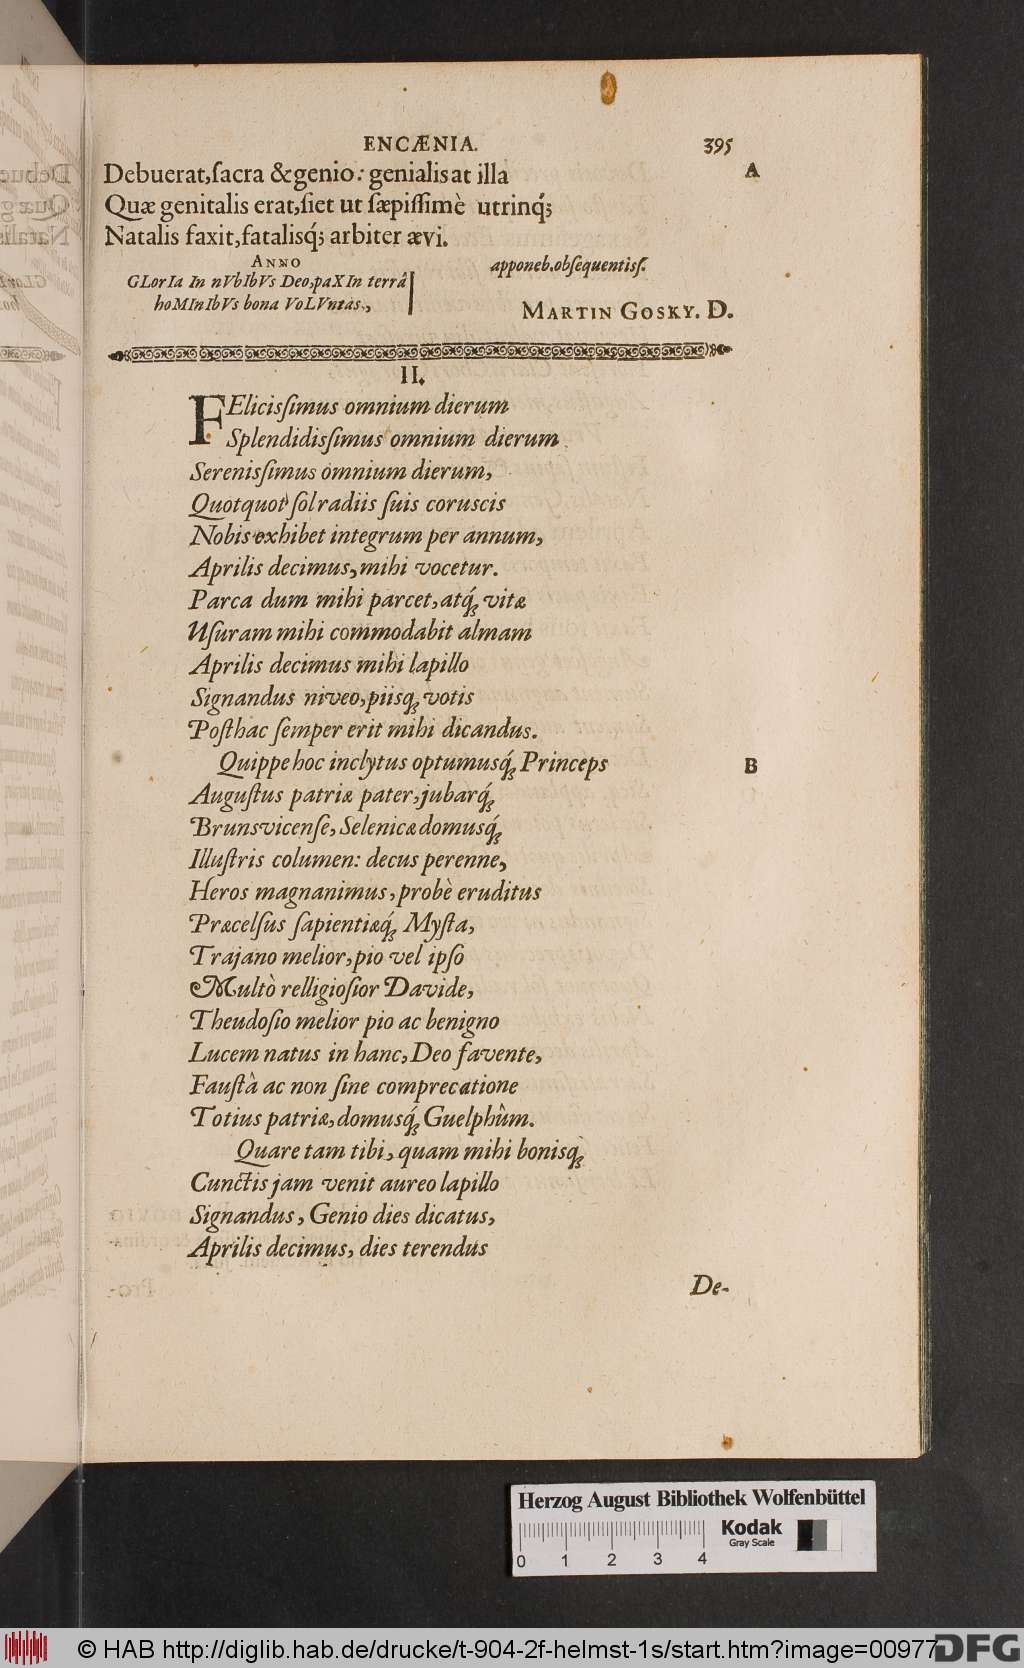 ENCÆNIA. 395
Debuerat, ſacra & genio: genialis at illa A
Quæ genitalis erat, ſiet ut ſæpiſſimè utrinq́;
Natalis faxit, fatalisq́; arbiter ævi.
ANNO
GLorIa In nVbIbVs Deo, paXIn terrâ
hoMInIbVs bona VoLVntas.,
apponeb. obſequentiſſ.
MARTIN GOSKY. D.
II.
FElicisſimus omnium dierum
Splendidisſimus omnium dierum
Serenisſimus omnium dierum,
Quotquot ſol radiis ſuis coruscis
Nobis exhibet integrum per annum,
Aprilis decimus, mihi vocetur.
Parca dum mihi parcet, atq́; vitæ
Uſuram mihi commodabit almam
Aprilis decimus mihi lapillo
Signandus niveo, piisq; votis
Poſthac ſemper erit mihi dicandus.
Quippe hoc inclytus optumusq́; Princeps B
Auguſtus patriæ pater, jubarq́;
Brunsvicenſe, Selenicæ domusq́;
Illuſtris columen: decus perenne,
Heros magnanimus, probè eruditus
Præcelſus ſapientiæq́; Myſta,
Trajano melior, pio vel ipſo
Multò relligioſior Davide,
Theudoſio melior pio ac benigno
Lucem natus in hanc, Deo favente,
Fauſtâ ac non ſine comprecatione
Totius patriæ, domusq́; Guelphûm.
Quare tam tibi, quam mihi bonisq;
Cunctis jam venit aureo lapillo
Signandus, Genio dies dicatus,
Aprilis decimus, dies terendus
De-
Herzog August Bibliothek Wolfenbüttel
Kodak
Gray Scale
0 1 2 3 4
© HAB http://diglib.hab.de/drucke/t-904-2f-helmst-1s/start.htm?image=00977
DFG